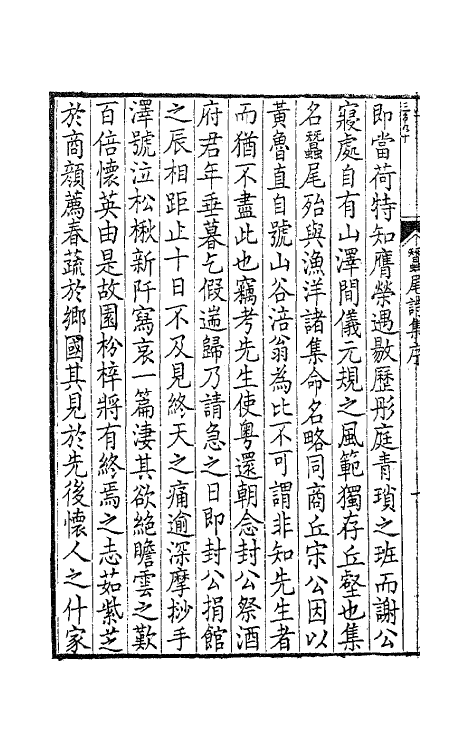 蠶尾詩集序
即當荷特知膺榮遇敭歷彤庭青瑣之班而謝公
寢處自有山澤間儀元規之風範獨存丘壑也集
名蠶尾殆與漁洋諸集命名略同商丘宋公因以
黃魯直自號山谷涪翁為比不可謂非知先生者
而猶不盡此也竊考先生使粵還朝念封公祭酒
府君年垂暮乞假遄歸乃請急之日即封公捐館
之辰相距止十日不及見終天之痛逾深摩挲手
澤號泣松楸新阡寫哀一篇淒其欲絕瞻雲之歎
百倍懷英由是故園枌梓將有終焉之志茹紫芝
於商顏薦春蔬於鄉國其見於先後懷人之什家